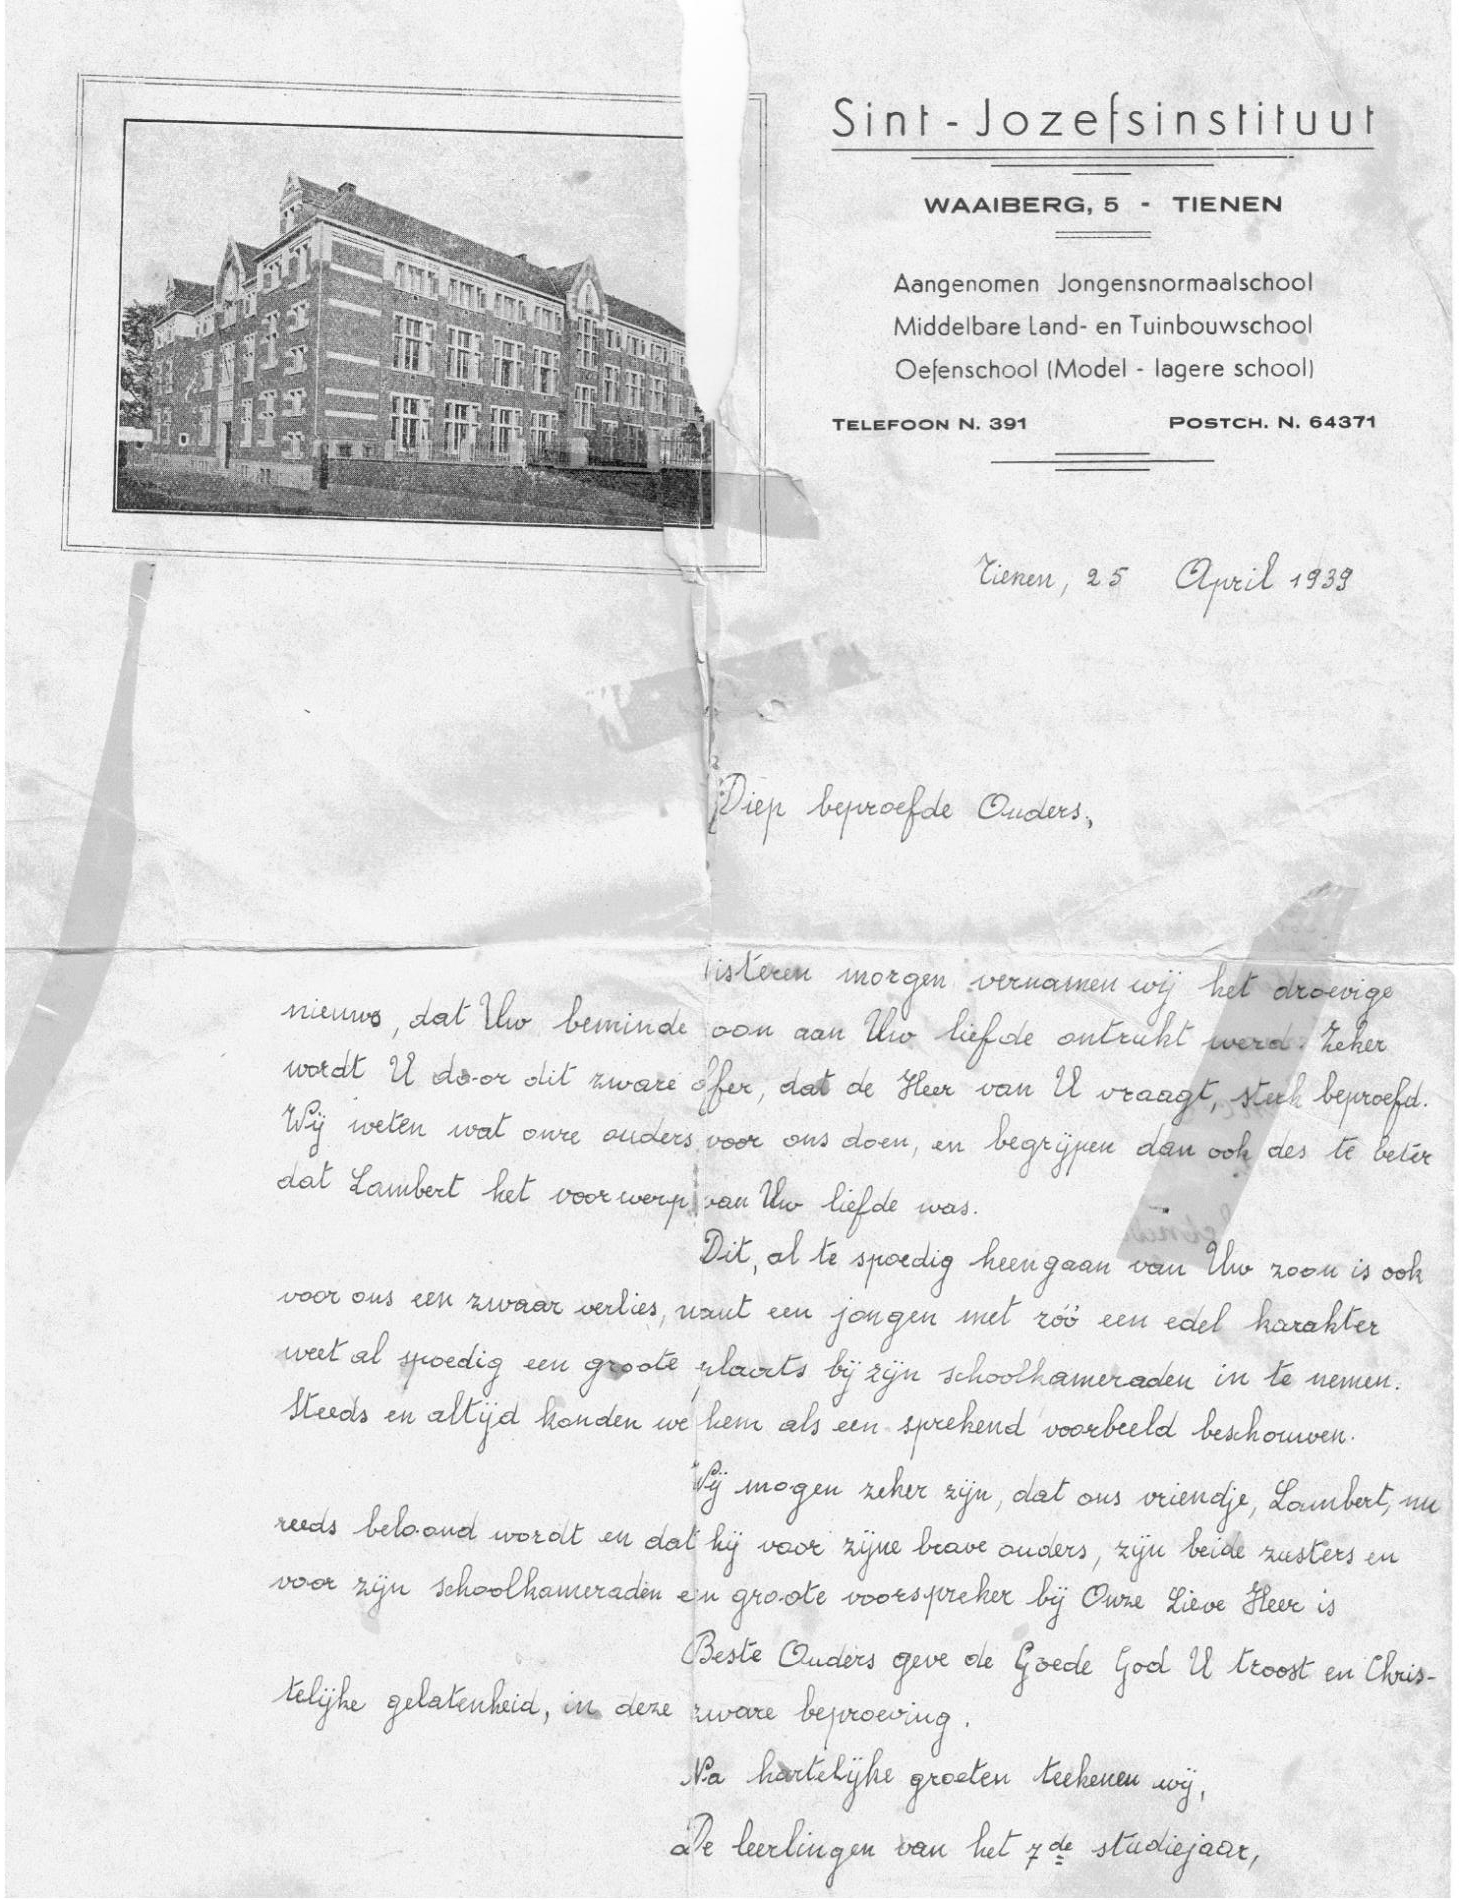 Sint-Jozefsinstituut
WAAIBERG, 5 - TIENEN
Aangenomen Jongensnormaalschool
Middelbare Land- en Tuinbouwschool
Oefenschool (Model - lagere school)
TELEFOON N. 391 POSTCH. N. 64371
Tienen, 25 April 1939
Diep beproefde Ouders,
isteren morgen vernamen wij het droevige
nieuws, dat Uw beminde oon aan Uw liefde ontrukt werd. Zeker
wordt U door dit zware offer, dat de Heer van U vraagt, sterk beproefd.
Wij weten wat onze ouders voor ons doen, en begrijpen dan ook des te beter
dat Lambert het voorwerp van Uw liefde was.
Dit, al te spoedig heengaan van Uw zoon is ook
voor ons een zwaar verlies, want een jongen met zóó een edel karakter
weet al spoedig een groote plaats bij zijn schoolkameraden in te nemen.
Steeds en altijd konden we hem als een sprekend voorbeeld beschouwen.
Wij mogen zeker zijn, dat ons vriendje, Lambert, nu
reeds beloond wordt en dat hij voor zijne brave ouders, zijn beide zusters en
voor zijn schoolkameraden en groote voorspreker bij Onze Lieve Heer is
Beste Ouders geve de Goede God U troost en Chris-
telijke gelatenheid, in deze zware beproeving.
Na hartelijke groeten teekenen wij,
De leerlingen van het 7de studiejaar,